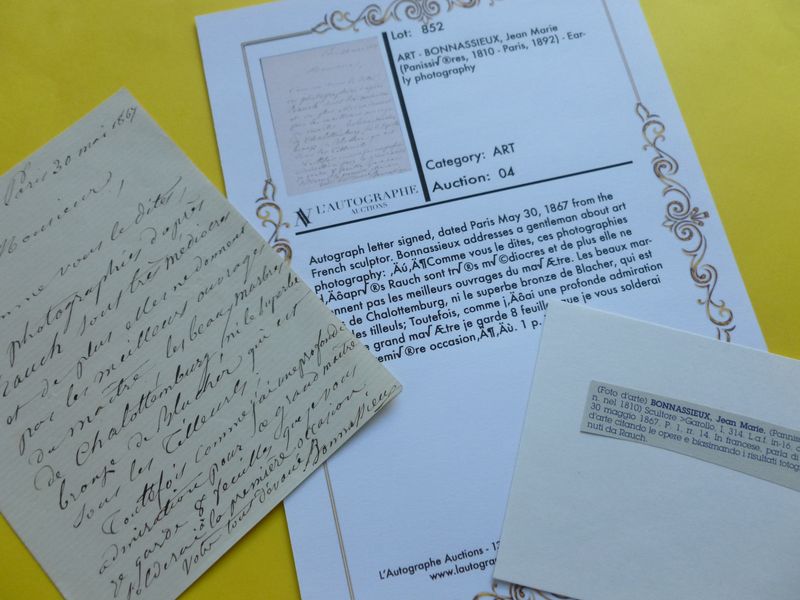 Paris 30 mai 1867
Monsieur,
comme vous le dites,
photographies d'après
Rauch sont très médiocres
et de plus elles ne donnent
pas les meilleurs ouvrages
du maître; les beaux marbres
de Chalottembourg, ni le superbe
bronze de Blucher qui est
sous les Tilleuls;
Toutefois comme j'ai une profonde
admiration pour ce grand maître
je garde 8 feuilles que je vous
solderai à la première occasion
Votre tout dévoué Bonnassieux
Lot: 852
ART - BONNASSIEUX, Jean Marie
(Panissi√®res, 1810 - Paris, 1892) - Ear-
ly photography
Category: ART
Auction: 04
L'AUTOGRAPHE
AUCTIONS
Autograph letter signed, dated Paris May 30, 1867 from the
French sculptor. Bonnassieux addresses a gentleman about art
photography: ‚Äú‚Ä¶Comme vous le dites, ces photographies
d‚Äôapr√®s Rauch sont tr√®s m√©diocres et de plus elle ne
nnent pas les meilleurs ouvrages du ma√Ætre. Les beaux mar-
de Chalottemburg, ni le superbe bronze de Blacher, qui est
les tilleuls; Toutefois, comme j‚Äôai une profonde admiration
e grand ma√Ætre je garde 8 feuilles que je vous solderai
emi√®re occasion‚Ä¶‚Äù. 1 p.
L'Autographe Auctions - 1
www.lautogra
(Foto d'arte) BONNASSIEUX, Jean Marie. (Pannis
n. nel 1810) Scultore >Garollo, I, 314. L.a.f. In-16,
30 maggio 1867. P. 1, rr. 14. In francese, parla di
d'arte citando le opere e biasimando i risultati fotog
nuti da Rauch.